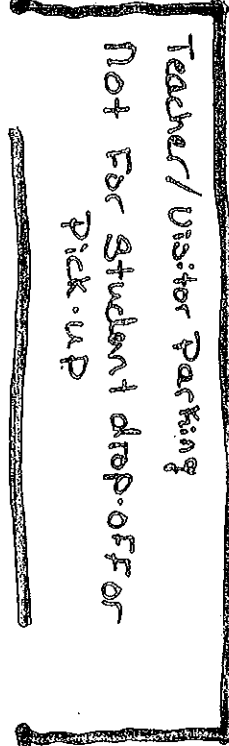 Teacher/Visitor Parking
Not For Student drop-off or
Pick-up